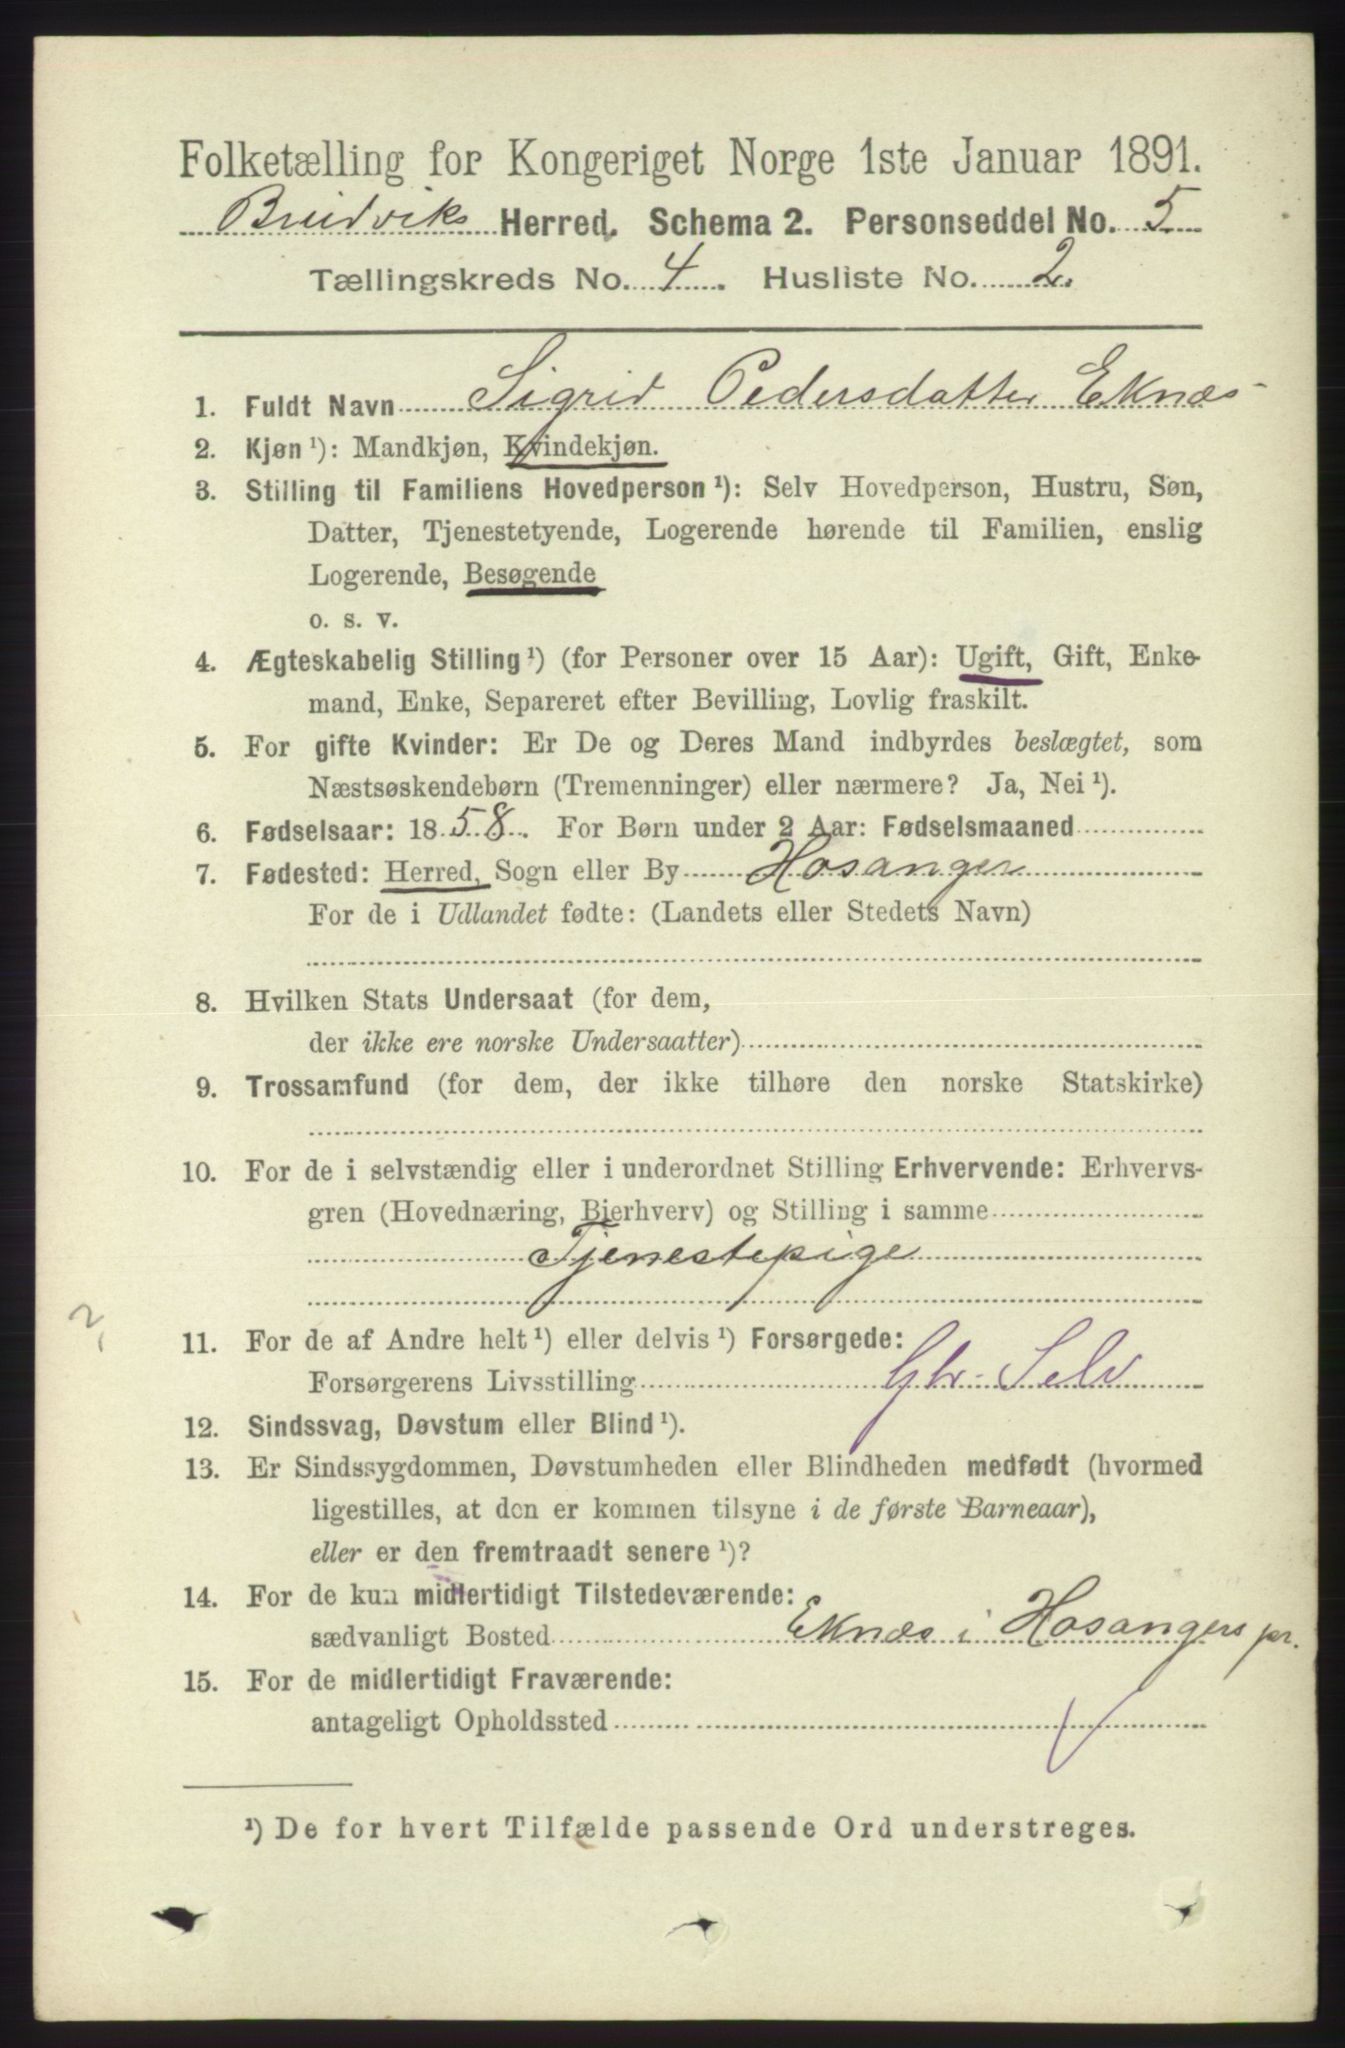 Folketælling for Kongeriget Norge 1ste Januar 1891.
Bruidviks Herred. Schema 2. Personseddel No. 5
Tællingskreds No. 4. Husliste No. 2.
1. Fuldt Navn Sigrid Pedersdatter Eknæs
2. Kjøn ¹): Mandkjøn, Kvindekjøn.
3. Stilling til Familiens Hovedperson ¹): Selv Hovedperson, Hustru, Søn,
Datter, Tjenestetyende, Logerende hørende til Familien, enslig
Logerende, Besøgende
o. s. v.
4. Ægteskabelig Stilling ¹) (for Personer over 15 Aar): Ugift, Gift, Enke-
mand, Enke, Separeret efter Bevilling, Lovlig fraskilt.
5. For gifte Kvinder: Er De og Deres Mand indbyrdes beslægtet, som
Næstsøskendebørn (Tremenninger) eller nærmere? Ja, Nei ¹).
6. Fødselsaar: 1858. For Børn under 2 Aar: Fødselsmaaned
7. Fødested: Herred, Sogn eller By Hosanger
For de i Udlandet fødte: (Landets eller Stedets Navn)
8. Hvilken Stats Undersaat (for dem,
der ikke ere norske Undersaatter)
9. Trossamfund (for dem, der ikke tilhøre den norske Statskirke)
10. For de i selvstændig eller i underordnet Stilling Erhvervende: Erhvervs-
gren (Hovednæring, Bierhverv) og Stilling i samme
Tjenestepige
2
11. For de af Andre helt ¹) eller delvis ¹) Forsørgede:
Forsørgerens Livsstilling Gbr. Selv
12. Sindssvag, Døvstum eller Blind ¹).
13. Er Sindssygdommen, Døvstumheden eller Blindheden medfødt (hvormed
ligestilles, at den er kommen tilsyne i de første Barneaar),
eller er den fremtraadt senere ¹)?
14. For de kun midlertidigt Tilstedeværende:
sædvanligt Bosted Eknæs i Hosangers pr.
15. For de midlertidigt Fraværende:
antageligt Opholdssted
¹) De for hvert Tilfælde passende Ord understreges.